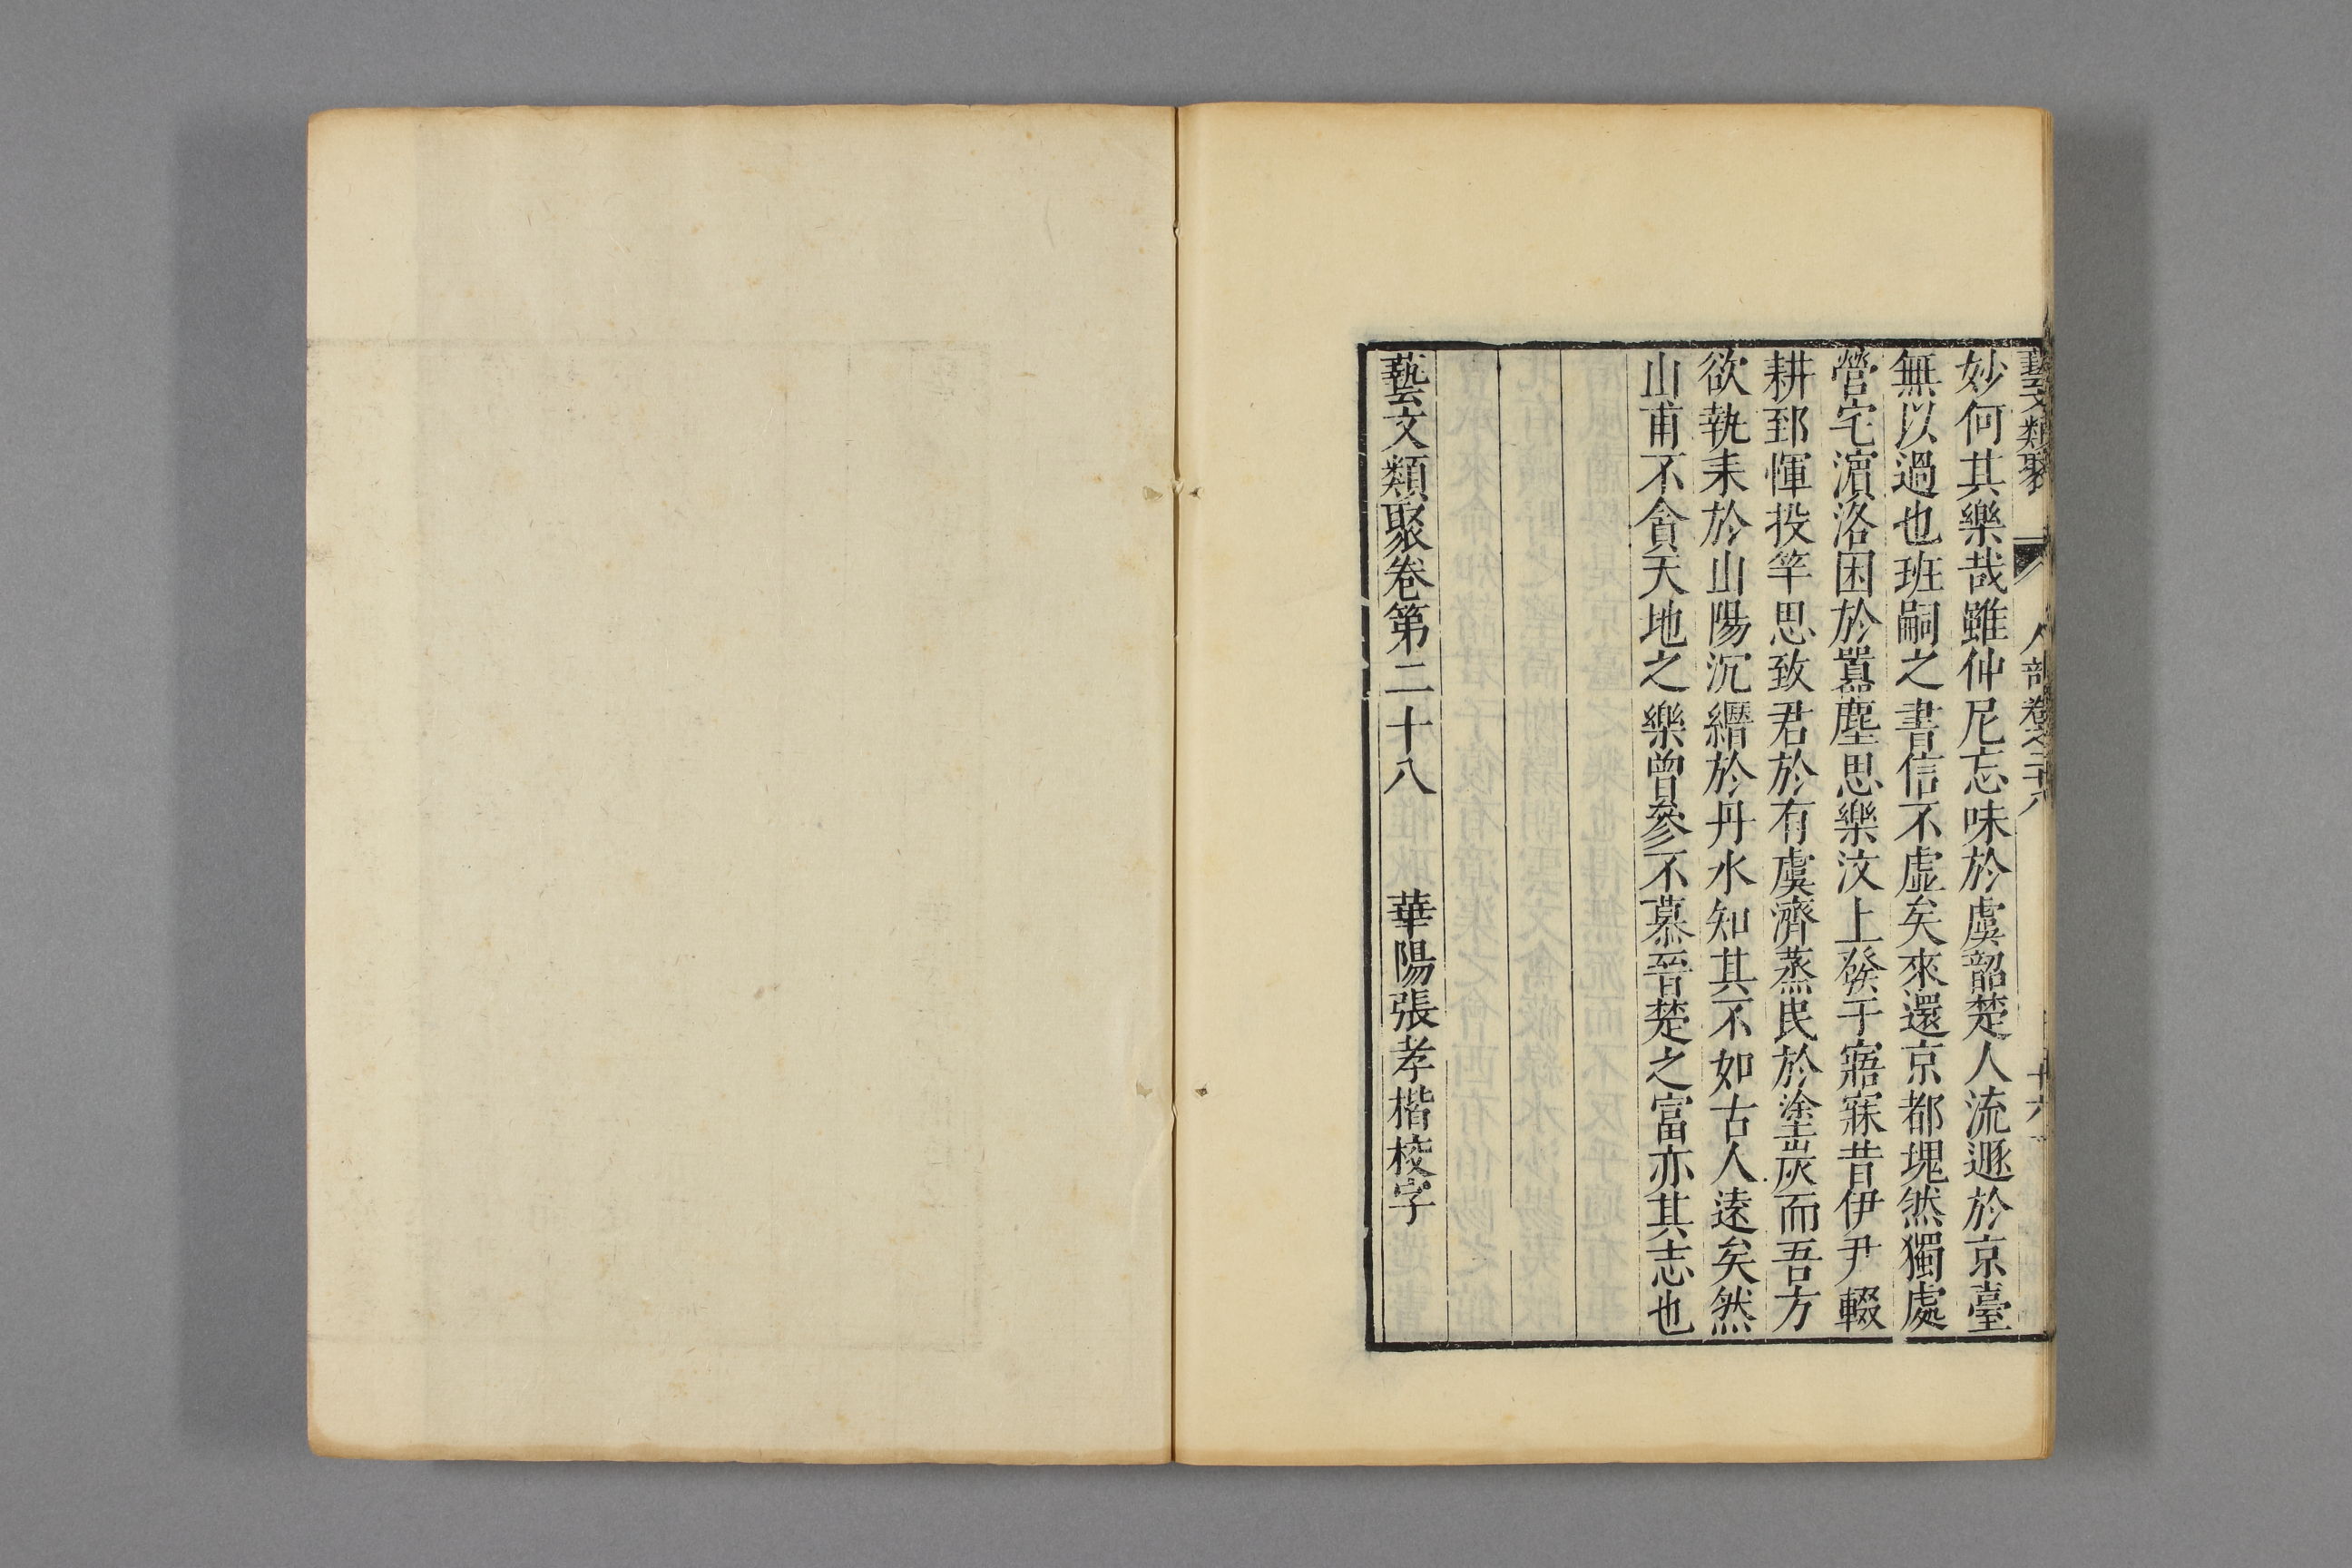 藝文類聚 人部卷之二十八 十六
妙何其樂哉雖仲尼忘味於虞韶楚人流遯於京臺
無以過也班嗣之書信不虛矣來還京都塊然獨處
營宅濵洛困於囂塵思樂汶上發于寤寐昔伊尹輟
耕郅惲投竿思致君於有虞濟蒸民於塗炭而吾方
欲執耒於山陽沉緡於丹水知其不如古人遠矣然
山甫不貪天地之樂曾參不慕晉楚之富亦其志也
藝文類聚卷第二十八 華陽張孝楷校字